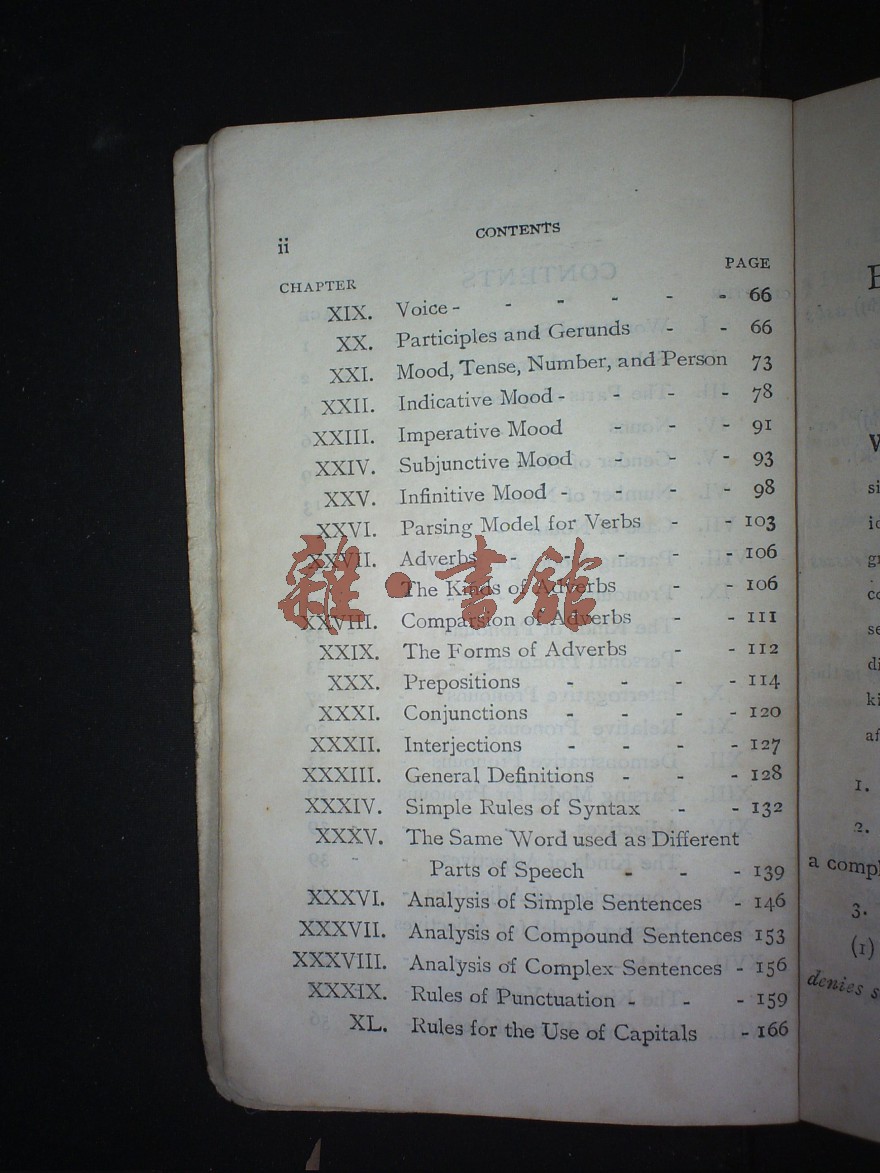 ii
CONTENTS
CHAPTER PAGE
XIX. Voice - - - - - - 66
XX. Participles and Gerunds - - 66
XXI. Mood, Tense, Number, and Person 73
XXII. Indicative Mood - - - - 78
XXIII. Imperative Mood - - - 91
XXIV. Subjunctive Mood - - - 93
XXV. Infinitive Mood - - - - 98
XXVI. Parsing Model for Verbs - - 103
XXVII. Adverbs - - - - - 106
The Kinds of Adverbs - - 106
XXVIII. Comparsion of Adverbs - - 111
XXIX. The Forms of Adverbs - - 112
XXX. Prepositions - - - - 114
XXXI. Conjunctions - - - - 120
XXXII. Interjections - - - - 127
XXXIII. General Definitions - - - 128
XXXIV. Simple Rules of Syntax - - 132
XXXV. The Same Word used as Different
Parts of Speech - - - 139
XXXVI. Analysis of Simple Sentences - 146
XXXVII. Analysis of Compound Sentences 153
XXXVIII. Analysis of Complex Sentences - 156
XXXIX. Rules of Punctuation - - - 159
XL. Rules for the Use of Capitals - 166
雜·書館
1.
2.
a compl
3.
(1)
denies s